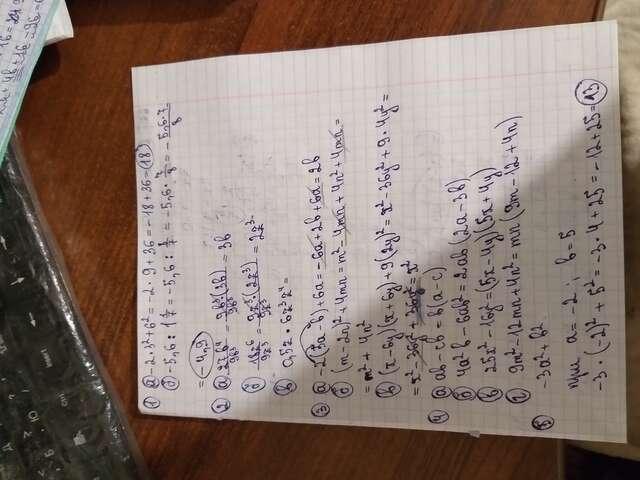 + 16 = 24
+ 4b + 16 - 9b =
Insert
Ctrl
Б
Ю
1 а -2·3²+6² = -2·9+36 = -18+36 = 18
б -5,6 : 1 1/7 = -5,6 : 8/7 = -5,6 · 7/8 = - 5,6·7/8
= -4,9
2 а 27b⁴/9b³ = 9b³·(3b)/9b³ = 3b
б 18z⁶/9z³ = 9z³·(2z³)/9z³ = 2z³
в 0,5z · 6z³z⁴ =
3 а -2(3a-b)+6a = -6a+2b+6a = 2b
б (m-2n)²+4mn = m²-4mn+4n²+4mn =
= m² + 4n²
в (x-6y)(x+6y)+9(2y)² = x²-36y²+9·4y² =
= x²-36y²+36y² = x²
4 а ab-cb = b(a-c)
б 4a²b-6ab² = 2ab(2a-3b)
в 25x²-16y² = (5x-4y)(5x+4y)
г 9m²-12mn+4n² = mn(9m-12+4n)
5 -3a²+b²
при a = -2 ; b = 5
-3·(-2)²+5² = -3·4+25 = -12+25 = 13